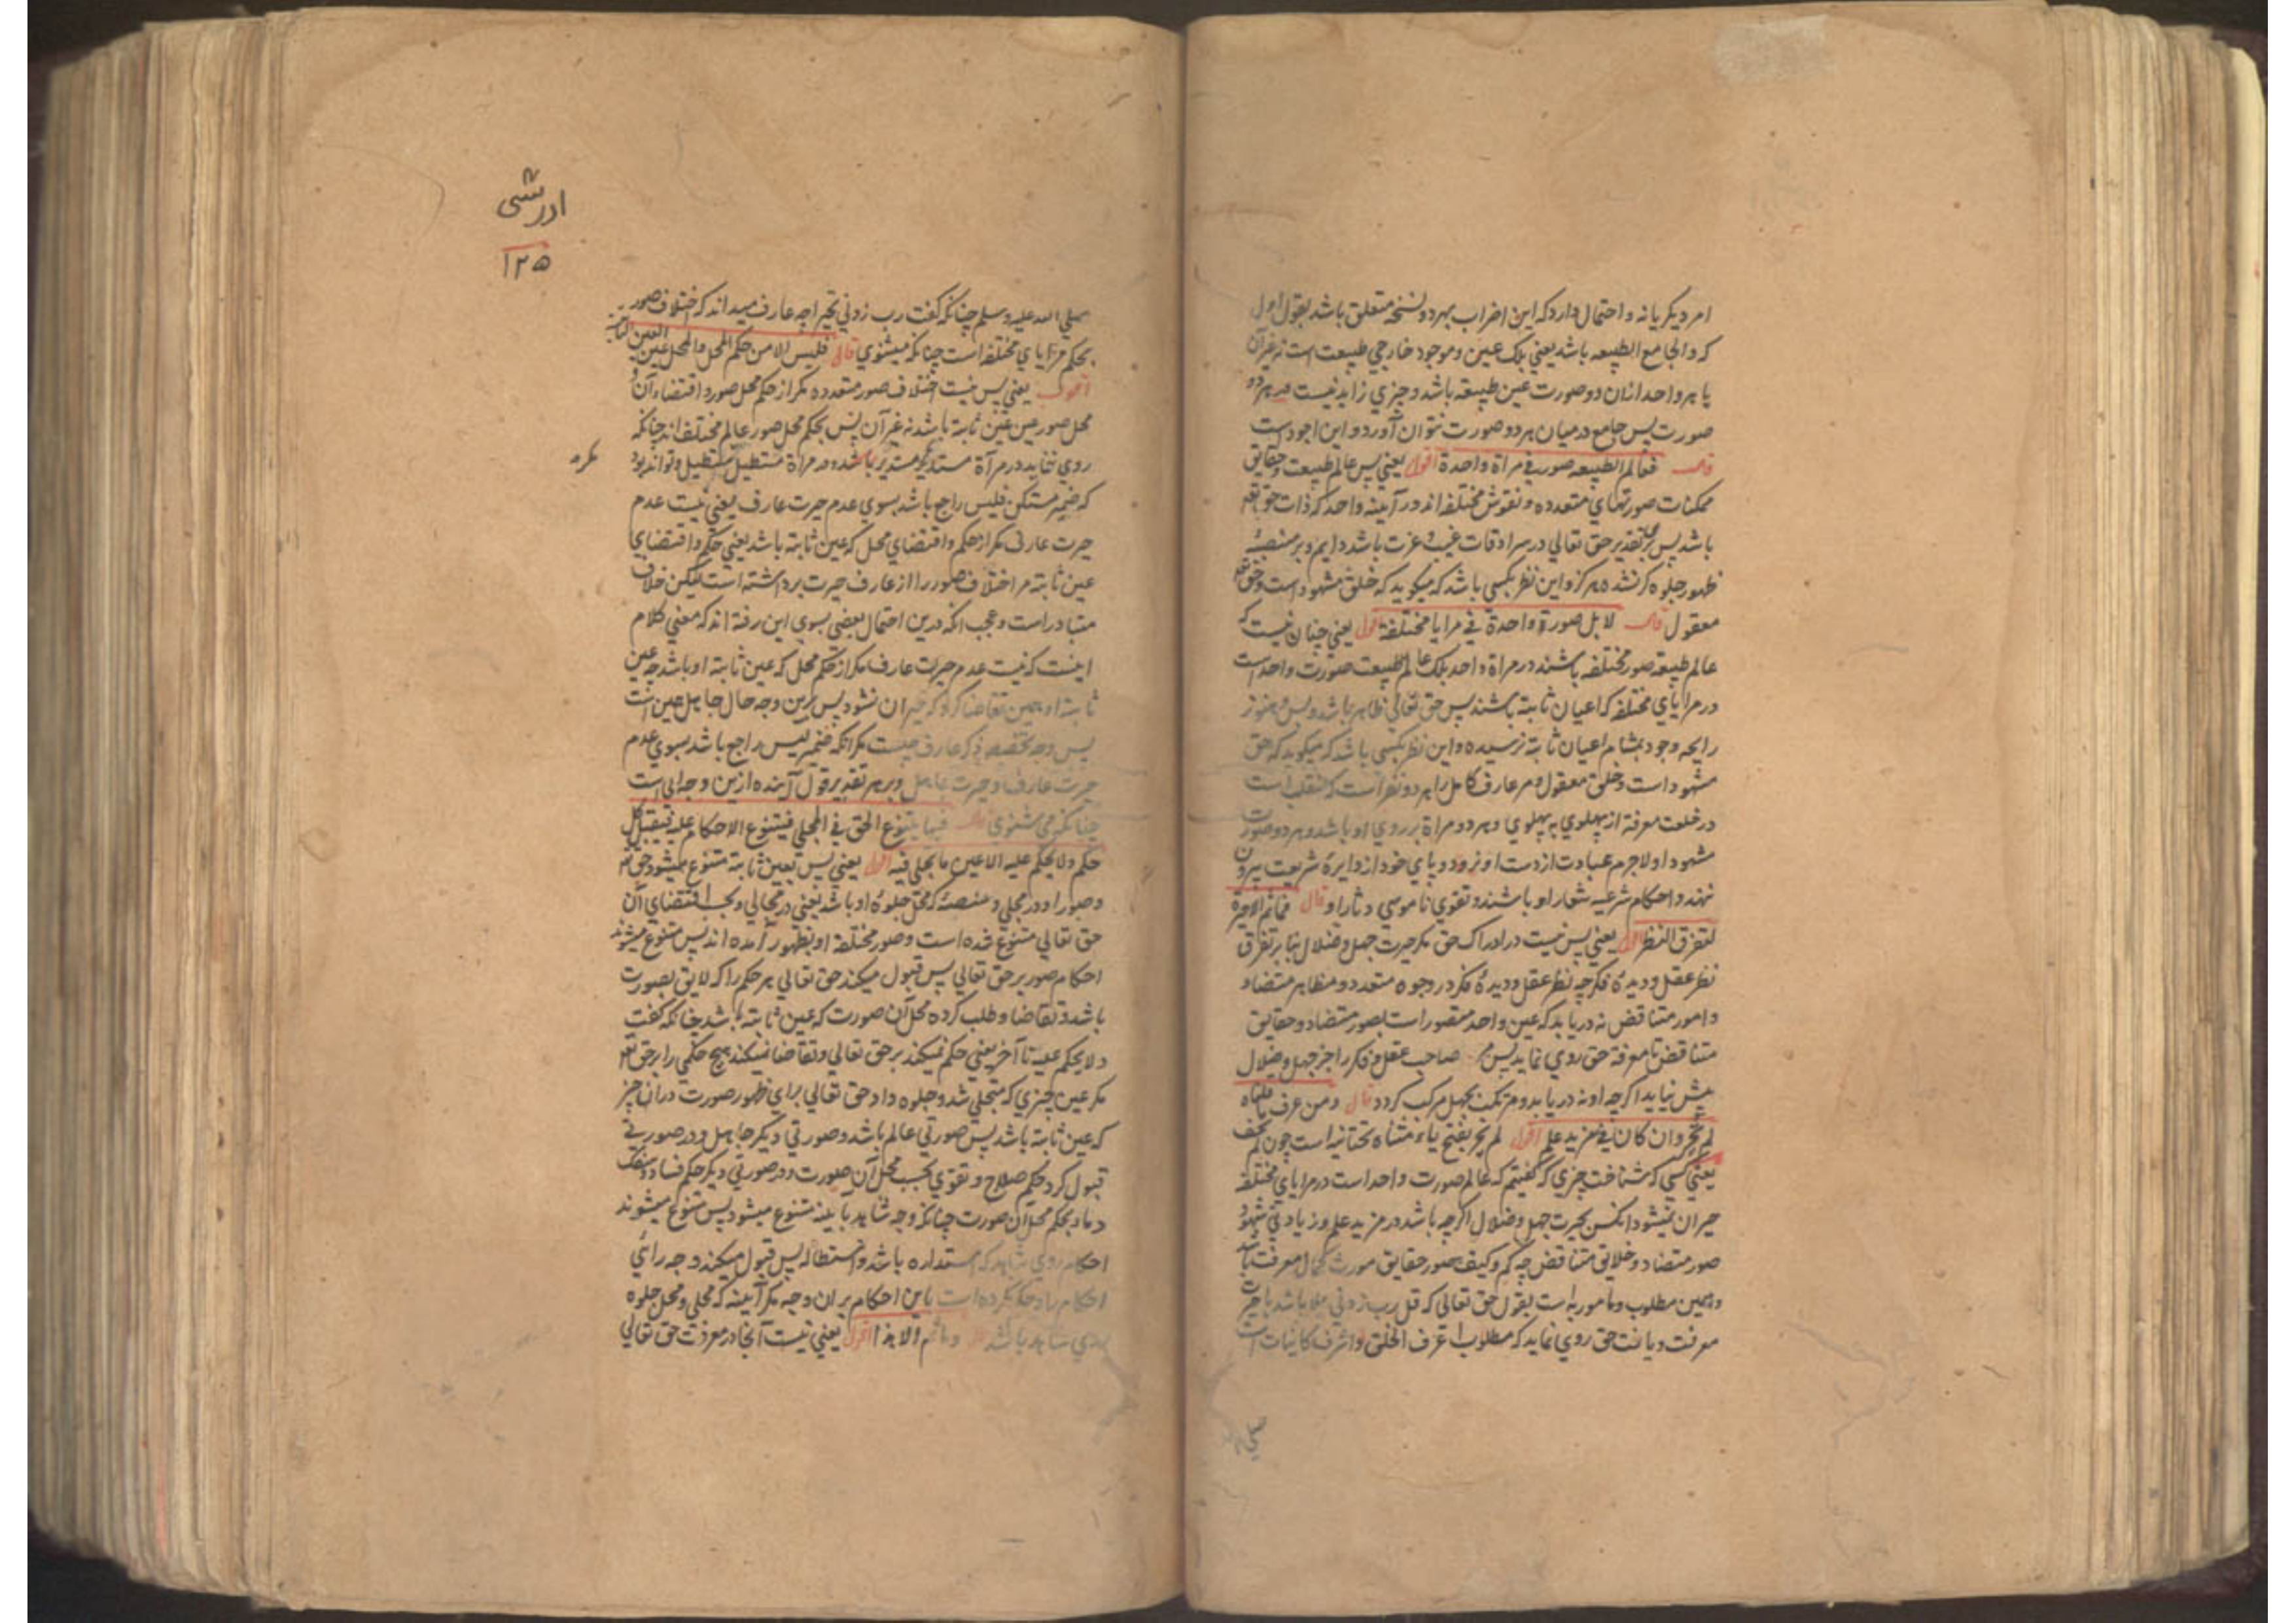 امر دیکر یا نه و احتمال دارد که این اضراب بهر دو نسخه متعلق باشد بقول اول
که و الجامع الطبیعه باشد یعنی بلک عین و موجود خارجی طبیعت است نه غیر آن
یا هر واحد ازان دو صورت عین طبیعه باشد و چیزی زاید نیست در هر دو
صورت پس جامع درمیان هر دو صورت نتوان آورد و این اجود است
قال فعالم الطبیعه صور فی مراة واحدة اقول یعنی پس عالم طبیعت و حقایق
ممکنات صورتهای متعدده و نقوش مختلفه اند در آیینه واحد که ذات حق تعم
باشد پس برین تقدیر حق تعالی در سرادقات غیب و عزت باشد دایم و بر منصهٔ
ظهور جلوه کر نشده هرکز و این نظر بکسی باشد که میکوید که خلق مشهود است و حق تعم
معقول قال لا بل صورة واحدة فی مرایا مختلفة اقول یعنی چنان نیست که
عالم طبیعه صور مختلفه باشند در مراة واحد بلک عالم طبیعت صورت واحد است
در مرایای مختلفه که اعیان ثابته باشند پس حق تعالی ظاهر باشد و بس و هنوز
رایحه وجود بمشام اعیان ثابته نرسیده و این نظر بکسی باشد که میکوید که حق
مشهود است و خلق معقول و مر عارف کامل را هر دو نظر است که منقلب است
در خلعت معرفة از پهلوی به پهلوی و هر دو مراة بر روی او باشد و هر دو صورت
مشهود او لاجرم عبادت از دست او نرود و پای خود از دایرهٔ شریعت بیرون
ننهد و احکام شرعیه شعار او باشند و تقوی ناموسی دثار او قال فما ثم الا حیرة
لتفرق النظر اقول یعنی پس نیست در ادراک حق مکر حیرت جهل و ضلال بنا بر تفرق
نظر عقل و دیدهٔ فکر چه نظر عقل و دیدهٔ فکر در وجوه متعدد و مظاهر متضاد
و امور متناقض نه دریابد که عین واحد متصور است بصور متضاد و حقایق
متناقض تا معرفة حق روی نماید پس صاحب عقل و فکر را جز جهل و ضلال
پیش نیاید اکرچه او نه دریابد و متکمن بجهل مرکب کردد قال و من عرف ما قلناه
لم یحر و ان کان فی مزید علم اقول لم یحر بفتح یاء مثناه تحتانیه است چون لم یخف
یعنی کسی که شناخت چیزی که کفتیم که عالم صورت واحد است در مرایای مختلفه
حیران نمیشود انکس بحیرت جهل و ضلال اکرچه باشد در مزید علم و زیادتی شهود
صور متضاد و خلایق متناقض چه کم و کیف صور حقایق مورث کمال معرفت باشد
و همین مطلوب و مامور به است بقول حق تعالی که قل رب زدنی علما باشد تا حیرت
معرفت و یافت حق روی نماید که مطلوب اعرف الخلق و اشرف کاینات است
صلی
ادرشی
۱۲۵
صلی الله علیه وسلم چنانکه کفت رب زدنی تحیرا چه عارف میداند که اختلاف صور
بحکم مرایای مختلفه است چنانکه میشنوی قال فلیس الا من حکم المحل و المحل عین العین الثابتة
اقول یعنی پس نیست اختلاف صور متعدده مکر از حکم محل صور و اقتضاء آن و
محل صور عین عین ثابته باشد نه غیر آن پس بحکم محل صور عالم مختلف اند چنانکه
روی نماید در مرآة مستدیر مستدیر باشد و در مراة مستطیل مستطیل و تواند بود
که ضمیر مستکن فلیس راجع باشد بسوی عدم حیرت عارف یعنی نیست عدم
حیرت عارف مکر از حکم و اقتضای محل که عین ثابته باشد یعنی حکم و اقتضای
عین ثابته مر اختلاف صور را از عارف حیرت برداشته است لیکن خلاف
متبادر است و عجب انکه درین احتمال بعضی بسوی این رفته اند که معنی کلام
اینست که نیست عدم حیرت عارف مکر از حکم محل که عین ثابته او باشد چه عین
ثابته او همین تقاضا کرد که حیران نشود پس برین وجه حال جاهل همین است
پس وجه تخصیص ذکر عارف چیست مکر انکه ضمیر لیس راجع باشد بسوی عدم
حیرت عارف و حیرت جاهل و بر هر تقدیر قول آینده ازین وجه ابی است
چنانکه می شنوی قال فبها یتنوع الحق فی المجلی فیتنوع الاحکام علیه فیقبل کل
حکم و لا یحکم علیه الا عین ما تجلی فیه اقول یعنی پس بعین ثابته متنوع میشود حق تعم
و صور او در مجلی و منصهٔ که محل جلوهٔ او باشد یعنی در مجالی و بحسب اقتضای آن
حق تعالی متنوع شده است و صور مختلفة او بظهور آمده اند پس متنوع میشوند
احکام صور بر حق تعالی پس قبول میکند حق تعالی هر حکم را که لایق بصورت
باشد و تقاضا و طلب کرده محل آن صورت که عین ثابته باشد چنانکه کفت
و لا یحکم علیه تا آخر یعنی حکم نمیکند بر حق تعالی و تقاضا نمیکند هیچ حکمی را بر حق تعم
مکر عین چیزی که متجلی شد و جلوه داد حق تعالی برای ظهور صورت دران چیز
که عین ثابته باشد پس صورتی عالم باشد و صورتی دیکر جاهل و در صورتی
قبول کرد حکم صلاح و تقوی بحسب محل آن صورت و در صورتی دیکر حکم فساد و سفک
دماء بحکم محل آن صورت چنانکه وجه شاهد بآیینه متنوع میشود پس متنوع میشوند
احکام روی شاهد که استداره باشد و استطاله پس قبول میکند وجه رائی
احکام را و حکم نکرده است باین احکام بران وجه مکر آیینه که مجلی و محل جلوه
روی شاهد باشد قال و ما ثم الا هذا اقول یعنی نیست آنجا در معرفت حق تعالی